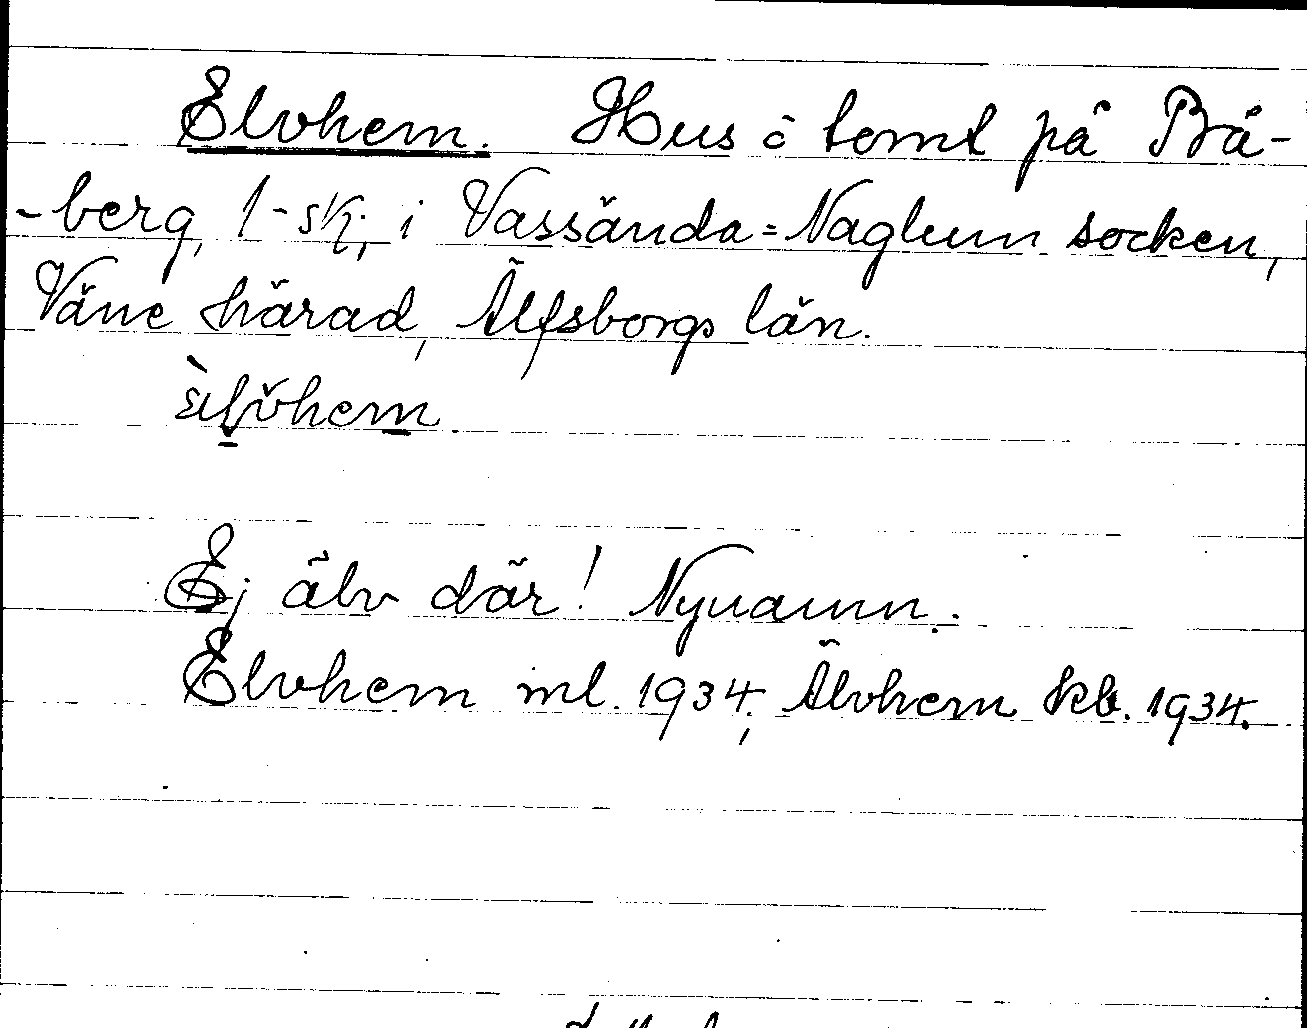 Elvhem. Hus å tomt på Brå-
-berg, 1-skj, i Vassända=Naglum socken,
Väne härad, Älfsborgs län.
Ej älv där! Nynamn.
Elvhem ml. 1934; Älvhem kb. 1934.